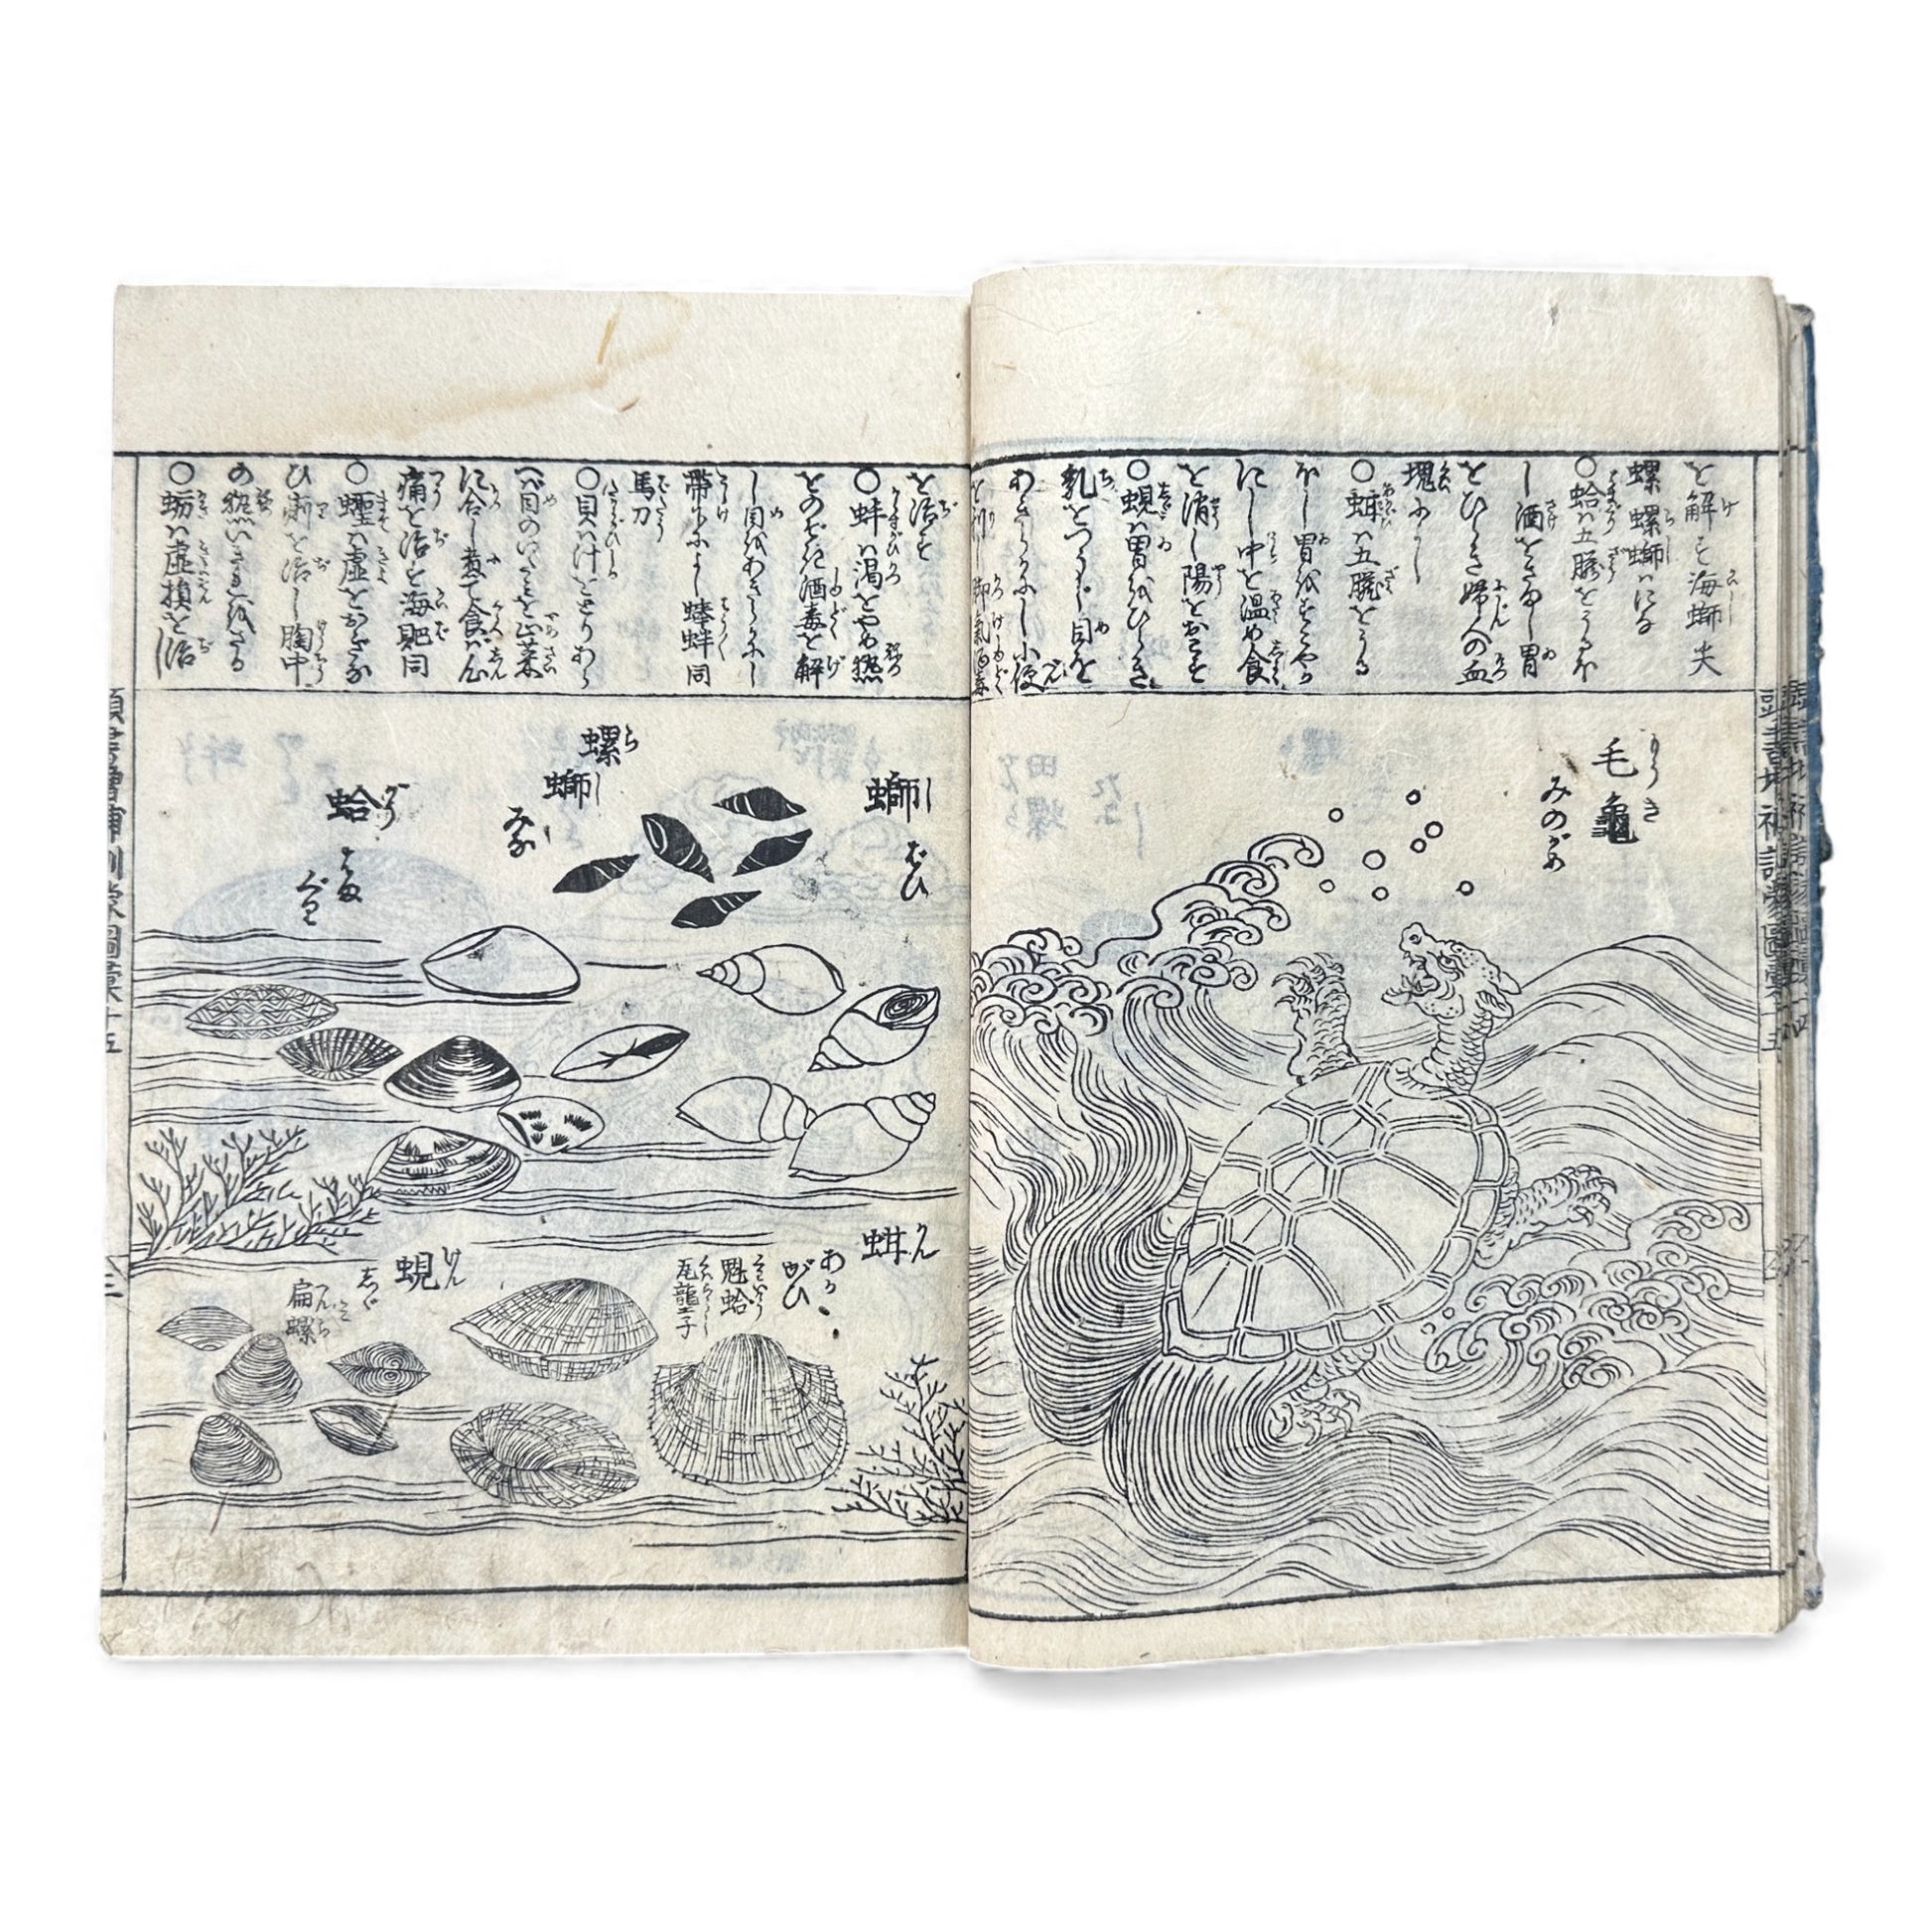 を解す海螄夫
螺螺螄にる
○蛤ハ五臓をうるほ
し酒をさまし胃
をひらき婦人の血
塊によし
○蚶ハ五臓をうる
ほし胃をすこやか
にし中を温め食
を消し陽をおこす
○蜆ハ胃をひらき
乳をつうじ目を
あきらかにし小便
を利し脚氣酒毒
毛龜 もうき
みのがめ
を治す
○蚌ハ渇をやめ熱
をのぞき酒毒を解
し目をあきらかにし
帯下によし 蚌同
馬刀
○貝ハ汁をとりあら
へバ目のいたミを止菜
に合し煮て食バ心
痛を治す海 同
○蟶ハ虚をおぎな
ひ痢を治し胸中
の熱 をさる
○蛎ハ虚損を治
螄 し
ばひ
螺螄 らし
みな
蛤 がう
はまぐり
蚶 かん
あかがひ
魁蛤
瓦龍子
蜆 けん
しゞみ
扁螺 へんら
頭書増補訓蒙圖彙十五
三